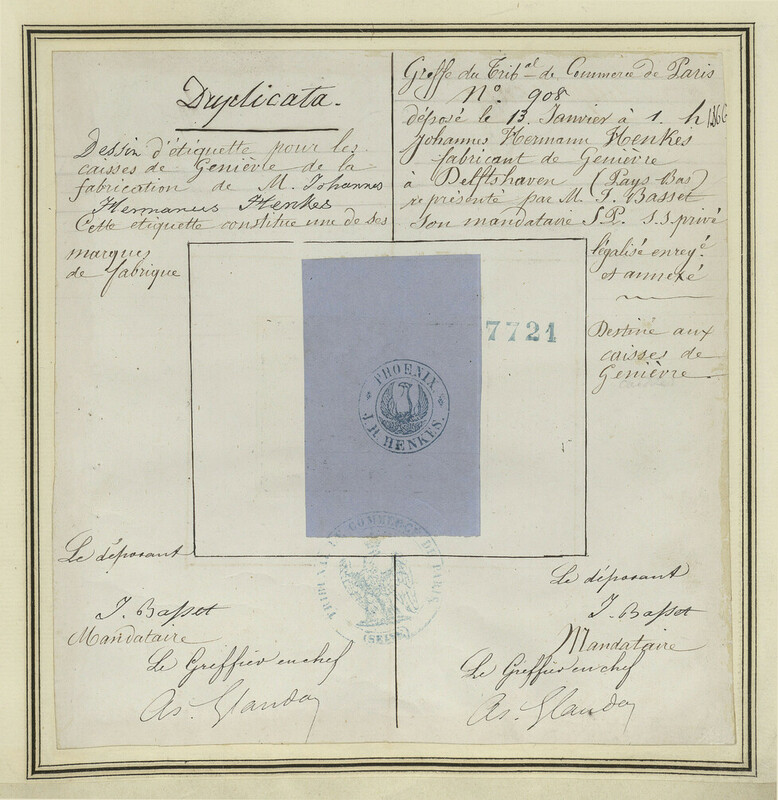 Duplicata.
Dessin d'étiquette pour les
caisses de Genièvre de la
fabrication de M. Johannes
Hermanus Henkes
Cette etiquette constitue une de ses
marques
de fabrique
Greffe du Tribal de Commerce de Paris
No. 908
déposé le 13 Janvier à 1. h 1866
Johannes Hermann Henkes
fabricant de Genièvre
à Delftshaven (Pays Bas)
représenté par M. J. Basset
son mandataire S.P. s.s. privé
légalisé enregé
et annexé
Destiné aux
caisses de
Genièvre
7721
PHOENIX.
J. H. HENKES.
TRIBUNAL DE COMMERCE DE PARIS
(SEINE)
Le déposant
J. Basset
Mandataire
Le Greffier en chef
Le déposant
J. Basset
Mandataire
Le Greffier en chef